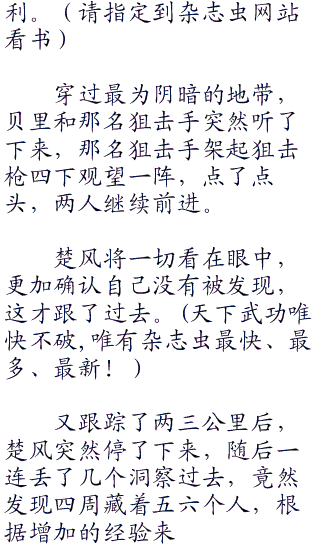 利。（请指定到杂志虫网站
看书）
穿过最为阴暗的地带，
贝里和那名狙击手突然听了
下来，那名狙击手架起狙击
枪四下观望一阵，点了点
头，两人继续前进。
楚风将一切看在眼中，
更加确认自己没有被发现，
这才跟了过去。(天下武功唯
快不破,唯有杂志虫最快、最
多、最新！)
又跟踪了两三公里后，
楚风突然停了下来，随后一
连丢了几个洞察过去，竟然
发现四周藏着五六个人，根
据增加的经验来